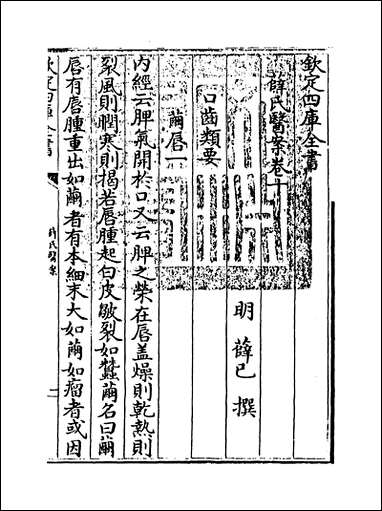 欽定四庫全書
薛氏醫案卷十
明 薛己 撰
口齒類要
繭唇一
內經云脾氣開於口又云脾之榮在唇盖燥則乾熱則
裂風則瞤寒則揭若唇腫起白皮皴裂如蠶繭名曰繭
唇有唇腫重出如繭者有本細末大如繭如瘤者或因
欽定四庫全書
薛氏醫案